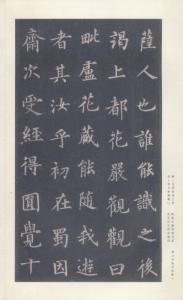 薩人也誰能識之後
謁上都花嚴觀觀曰
毗盧花藏能隨我遊
者其汝乎初在蜀因
齋次受經得圓覺十